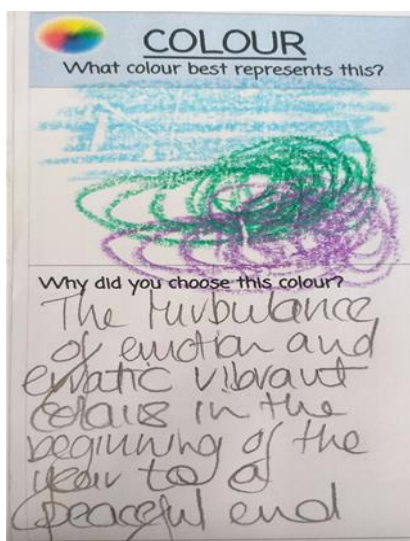 COLOUR
What colour best represents this?
Why did you choose this colour?
The turbulance
of emotion and
erratic vibrant
colours in the
beginning of the
year to a
peaceful end